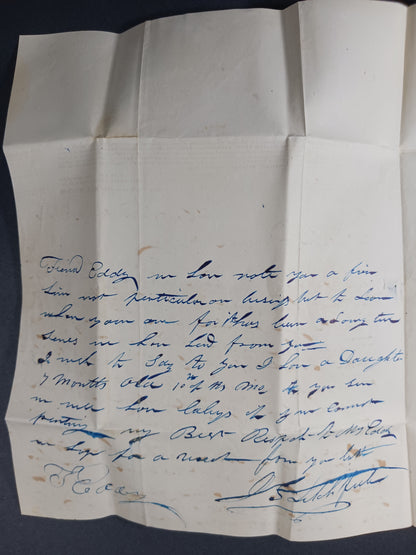 Friend Eddy we have wrote you a few
lines not particular on business but to know
where you are for it has been a long time
since we have heard from you
I wish to Say to you I have a Daughter
7 Months old 10th of this Mo. so you see
we will have babys if you cannot
my Best Respects to Mrs Eddy
we hope for a from you both
F Eddy